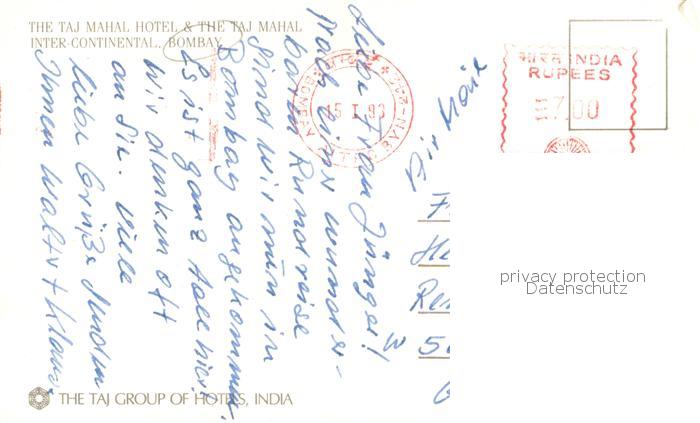 THE TAJ MAHAL HOTEL & THE TAJ MAHAL
INTER-CONTINENTAL, BOMBAY
Liebe Frau Jünger!
Nach einer wunder-
baren Rundreise
sind wir nun in
Bombay angekommen.
Es ist ganz toll hier!
Wir denken oft
an Sie. Viele
liebe Grüße senden
Ihnen Walter + Klaus
Air Mail
15 I 93
INDIA
RUPEES
7.00
privacy protection
Datenschutz
THE TAJ GROUP OF HOTELS, INDIA